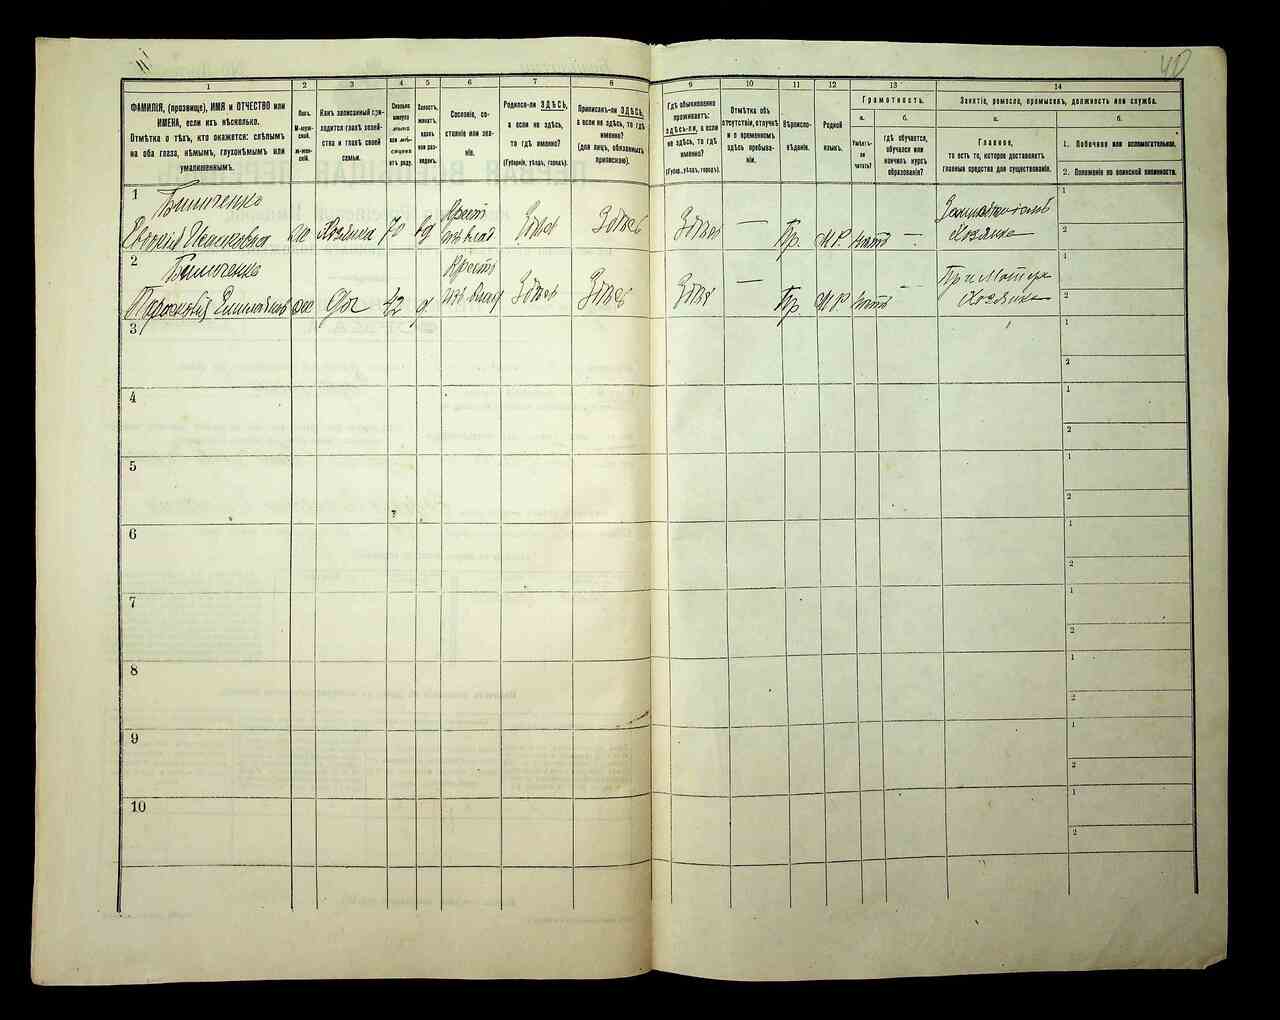 40
1 2 3 4 5 6 7 8 9 10 11 12 13 14
ФАМИЛІЯ, (прозвище), ИМЯ и ОТЧЕСТВО или
ИМЕНА, если ихъ нѣсколько.
Отмѣтка о тѣхъ, кто окажется: слѣпымъ
на оба глаза, нѣмымъ, глухонѣмымъ или
умалишеннымъ.
Полъ.
М-муж-
ской.
Ж-жен-
скій.
Какъ записанный при-
ходится главѣ хозяй-
ства и главѣ своей
семьи.
Сколько
минуло
лѣтъ
или мѣ-
сяцевъ
отъ роду.
Холостъ,
женатъ,
вдовъ
или раз-
веденъ.
Сословіе, со-
стояніе или зва-
ніе.
Родился-ли ЗДѢСЬ,
а если не здѣсь,
то гдѣ именно?
(Губернія, уѣздъ, городъ).
Приписанъ-ли ЗДѢСЬ,
а если не здѣсь, то гдѣ
именно?
(для лицъ, обязанныхъ
припискою).
Гдѣ обыкновенно
проживаетъ:
здѣсь-ли, а если
не здѣсь, то гдѣ
именно?
(Губер., уѣздъ, городъ).
Отмѣтка объ
отсутствіи, отлучкѣ
и о временномъ
здѣсь пребыва-
ніи.
Вѣроиспо-
вѣданіе.
Родной
языкъ.
Грамотность.
а. б.
Умѣетъ-
ли
читать?
гдѣ обучается,
обучался или
кончилъ курсъ
образованія?
Занятіе, ремесло, промыселъ, должность или служба.
а. б.
Главное,
то есть то, которое доставляетъ
главныя средства для существованія.
1. Побочное или вспомогательное.
2. Положеніе по воинской повинности.
1
Крест
Хозяйка 70 вд
Здѣсь Здѣсь Здѣсь — Пр. М Р. нѣтъ —
Хозяйка
1
2
2
Крест
42 Здѣсь Здѣсь Здѣсь — Пр. М Р. нѣтъ
При Матери
Хозяйка
1
2
3
1
2
4
1
2
5
1
2
6
1
2
7
1
2
8
1
2
9
1
2
10
1
2